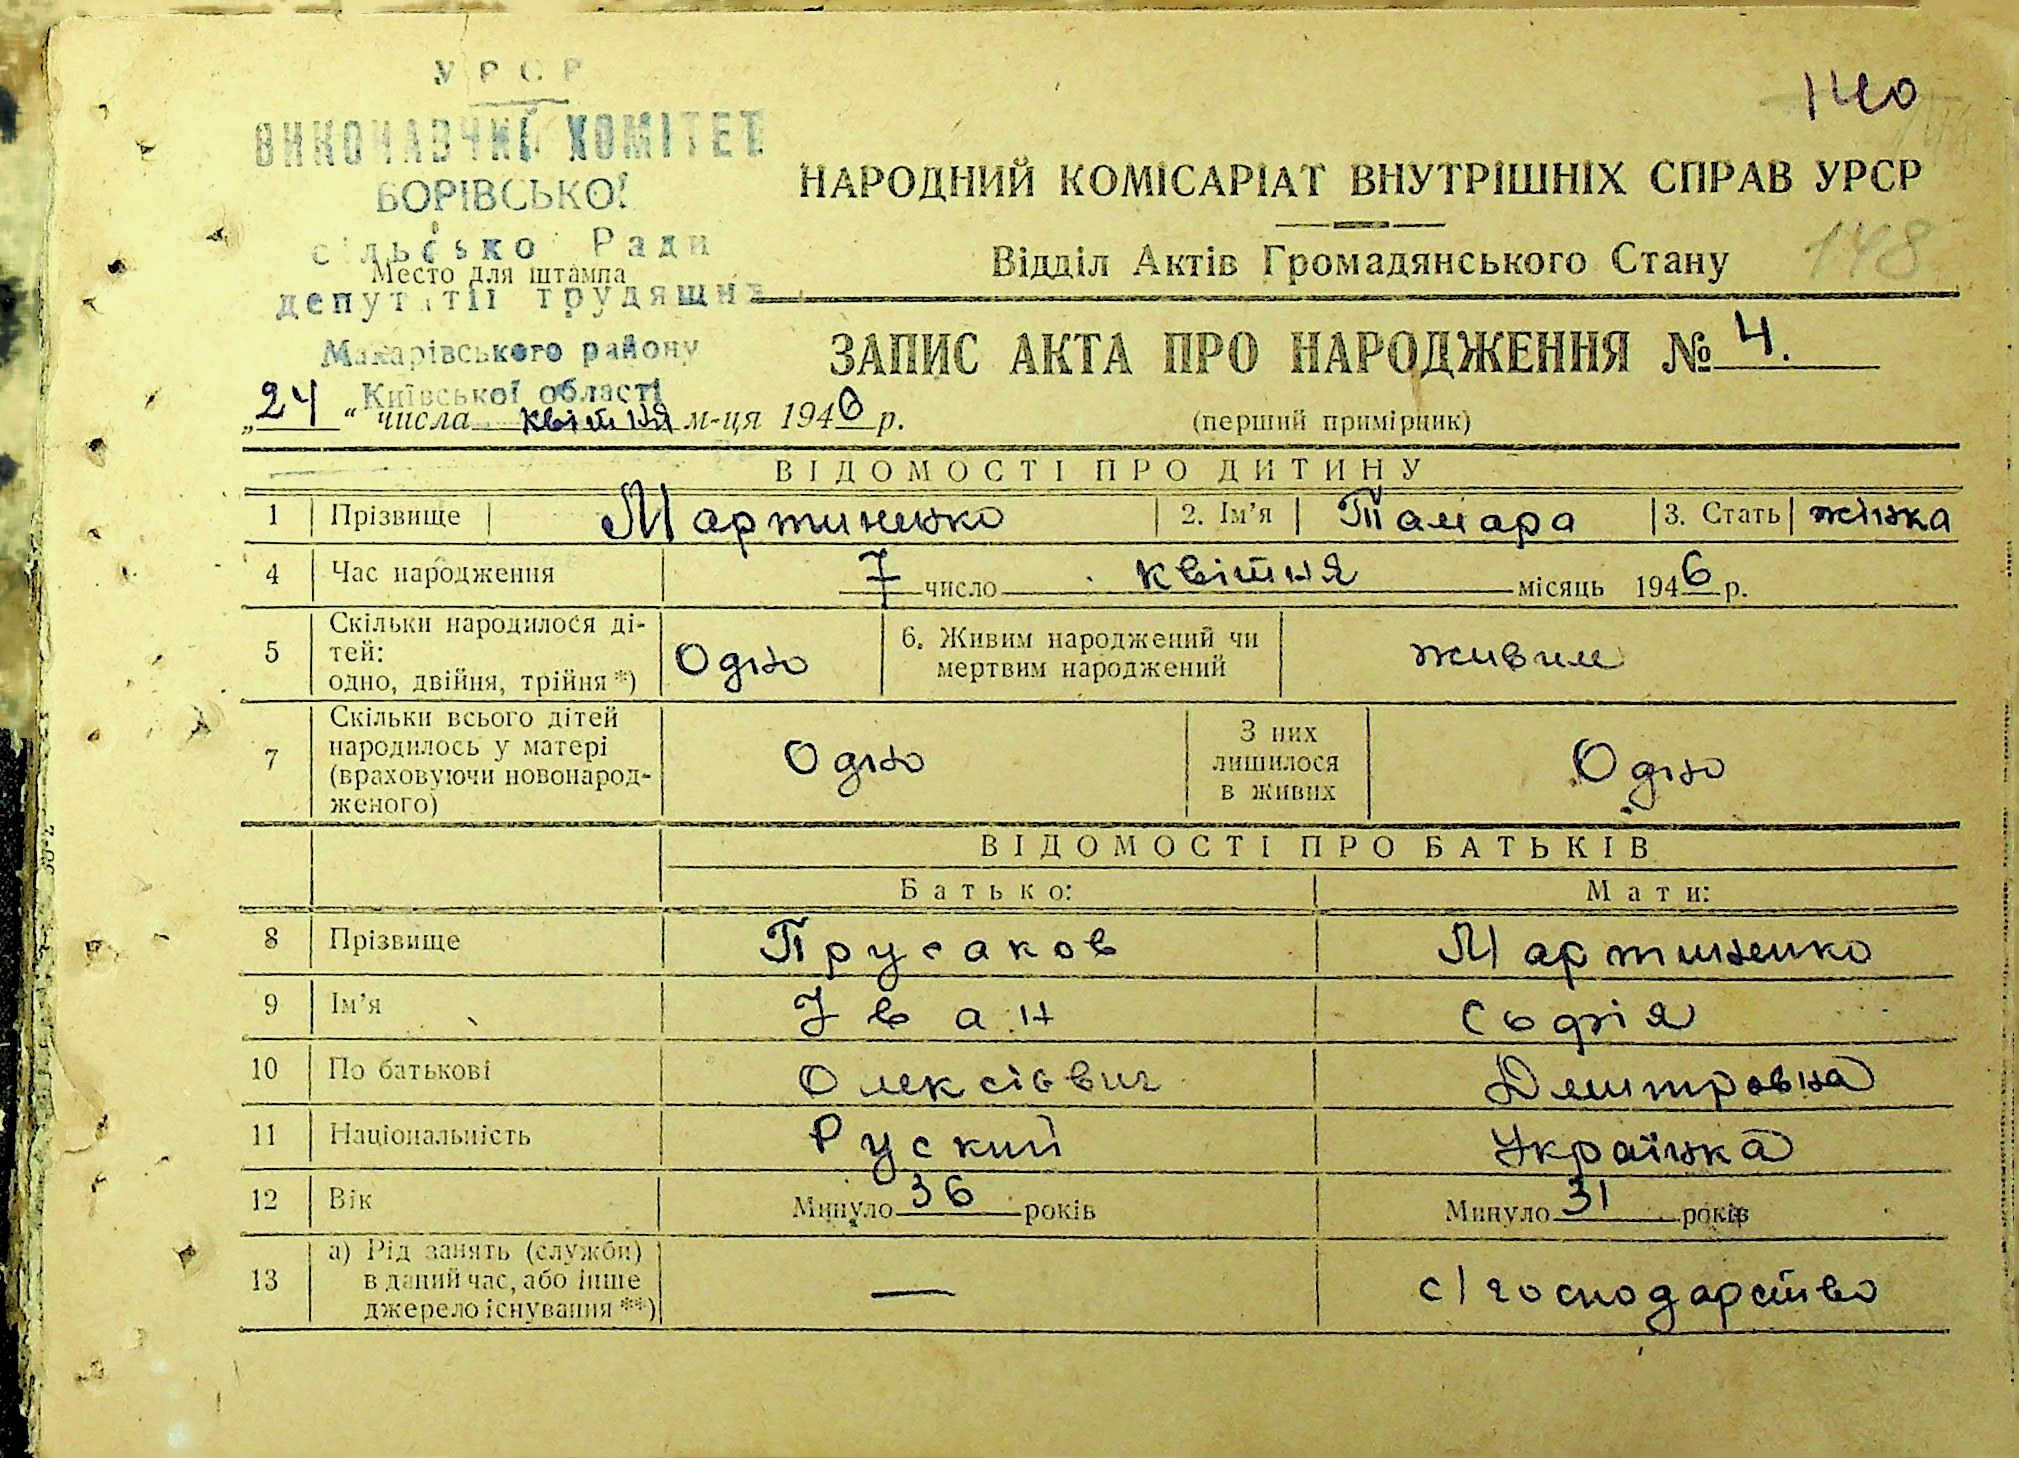 УРСР
140
ВИКОНАВЧИЙ КОМІТЕТ
БОРІВСЬКОЇ
сільсько Ради
Место для штампа
депутатів трудящих
Макарівського району
Київської області
НАРОДНИЙ КОМІСАРІАТ ВНУТРІШНІХ СПРАВ УРСР
Відділ Актів Громадянського Стану
148
ЗАПИС АКТА ПРО НАРОДЖЕННЯ № 4.
„24“ числа квітня м-ця 1946 р.
(перший примірник)
ВІДОМОСТІ ПРО ДИТИНУ
1 Прізвище Мартиненко 2. Ім’я Тамара 3. Стать жінка
4 Час народження 7 число квітня місяць 1946 р.
5 Скільки народилося ді-
тей:
одно, двійня, трійня *) Одно 6. Живим народжений чи
мертвим народжений живим
7 Скільки всього дітей
народилось у матері
(враховуючи новонарод-
женого) Одно З них
лишилося
в живих Одно
ВІДОМОСТІ ПРО БАТЬКІВ
Батько: Мати:
8 Прізвище Прусаков Мартиненко
9 Ім’я Іван Софія
10 По батькові Олексієвич Дмитровна
11 Національність Руский Українка
12 Вік Минуло 36 років Минуло 31 років
13 а) Рід занять (служби)
в даний час, або інше
джерело існування **) — с/господарство